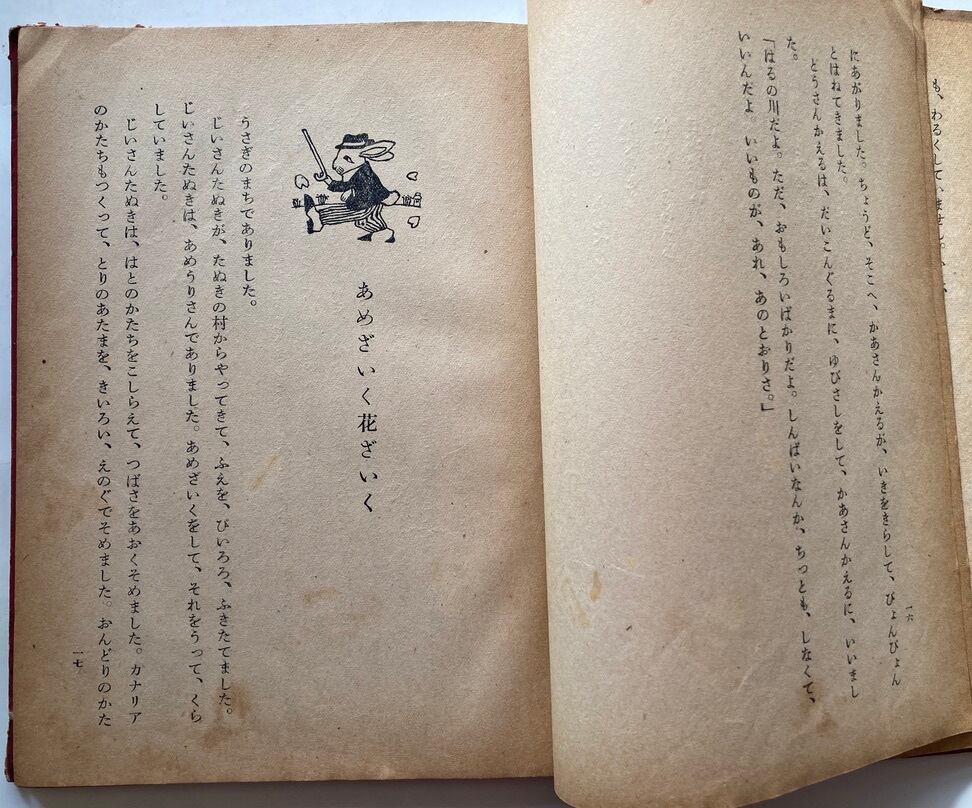 も、わるくして
にあがりました。ちょうど、そこへ、かあさんかえるが、いきをきらして、ぴょんぴょん
とはねてきました。
どうさんかえるは、だいこんぐるまに、ゆびさしをして、かあさんかえるに、いいまし
た。
「はるの川だよ。ただ、おもしろいばかりだよ。しんぱいなんか、ちっとも、しなくて、
いいんだよ。いいものが、あれ、あのとおりさ。」
一六
あめざいく花ざいく
うさぎのまちでありました。
じいさんたぬきが、たぬきの村からやってきて、ふえを、ぴいろろ、ふきたてました。
じいさんたぬきは、あめうりさんでありました。あめざいくをして、それをうって、くら
していました。
じいさんたぬきは、はとのかたちをこしらえて、つばさをあおくそめました。カナリア
のかたちもつくって、とりのあたまを、きいろい、えのぐでそめました。おんどりのかた
一七